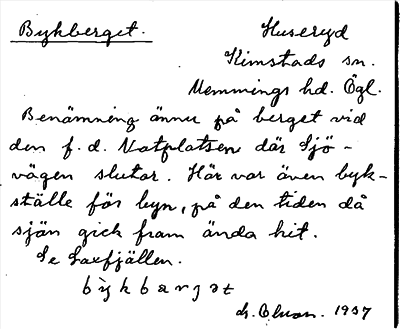 Bykberget. Huseryd
Kimstads sn.
Memmings hd. Ögl.
Benämning ännu på berget vid
den f. d. Notplatsen där Sjö-
vägen slutar. Här var även byk-
ställe för byn, på den tiden då
sjön gick fram ända hit.
Se Laxfjällen.
by̆kbærjət
1937